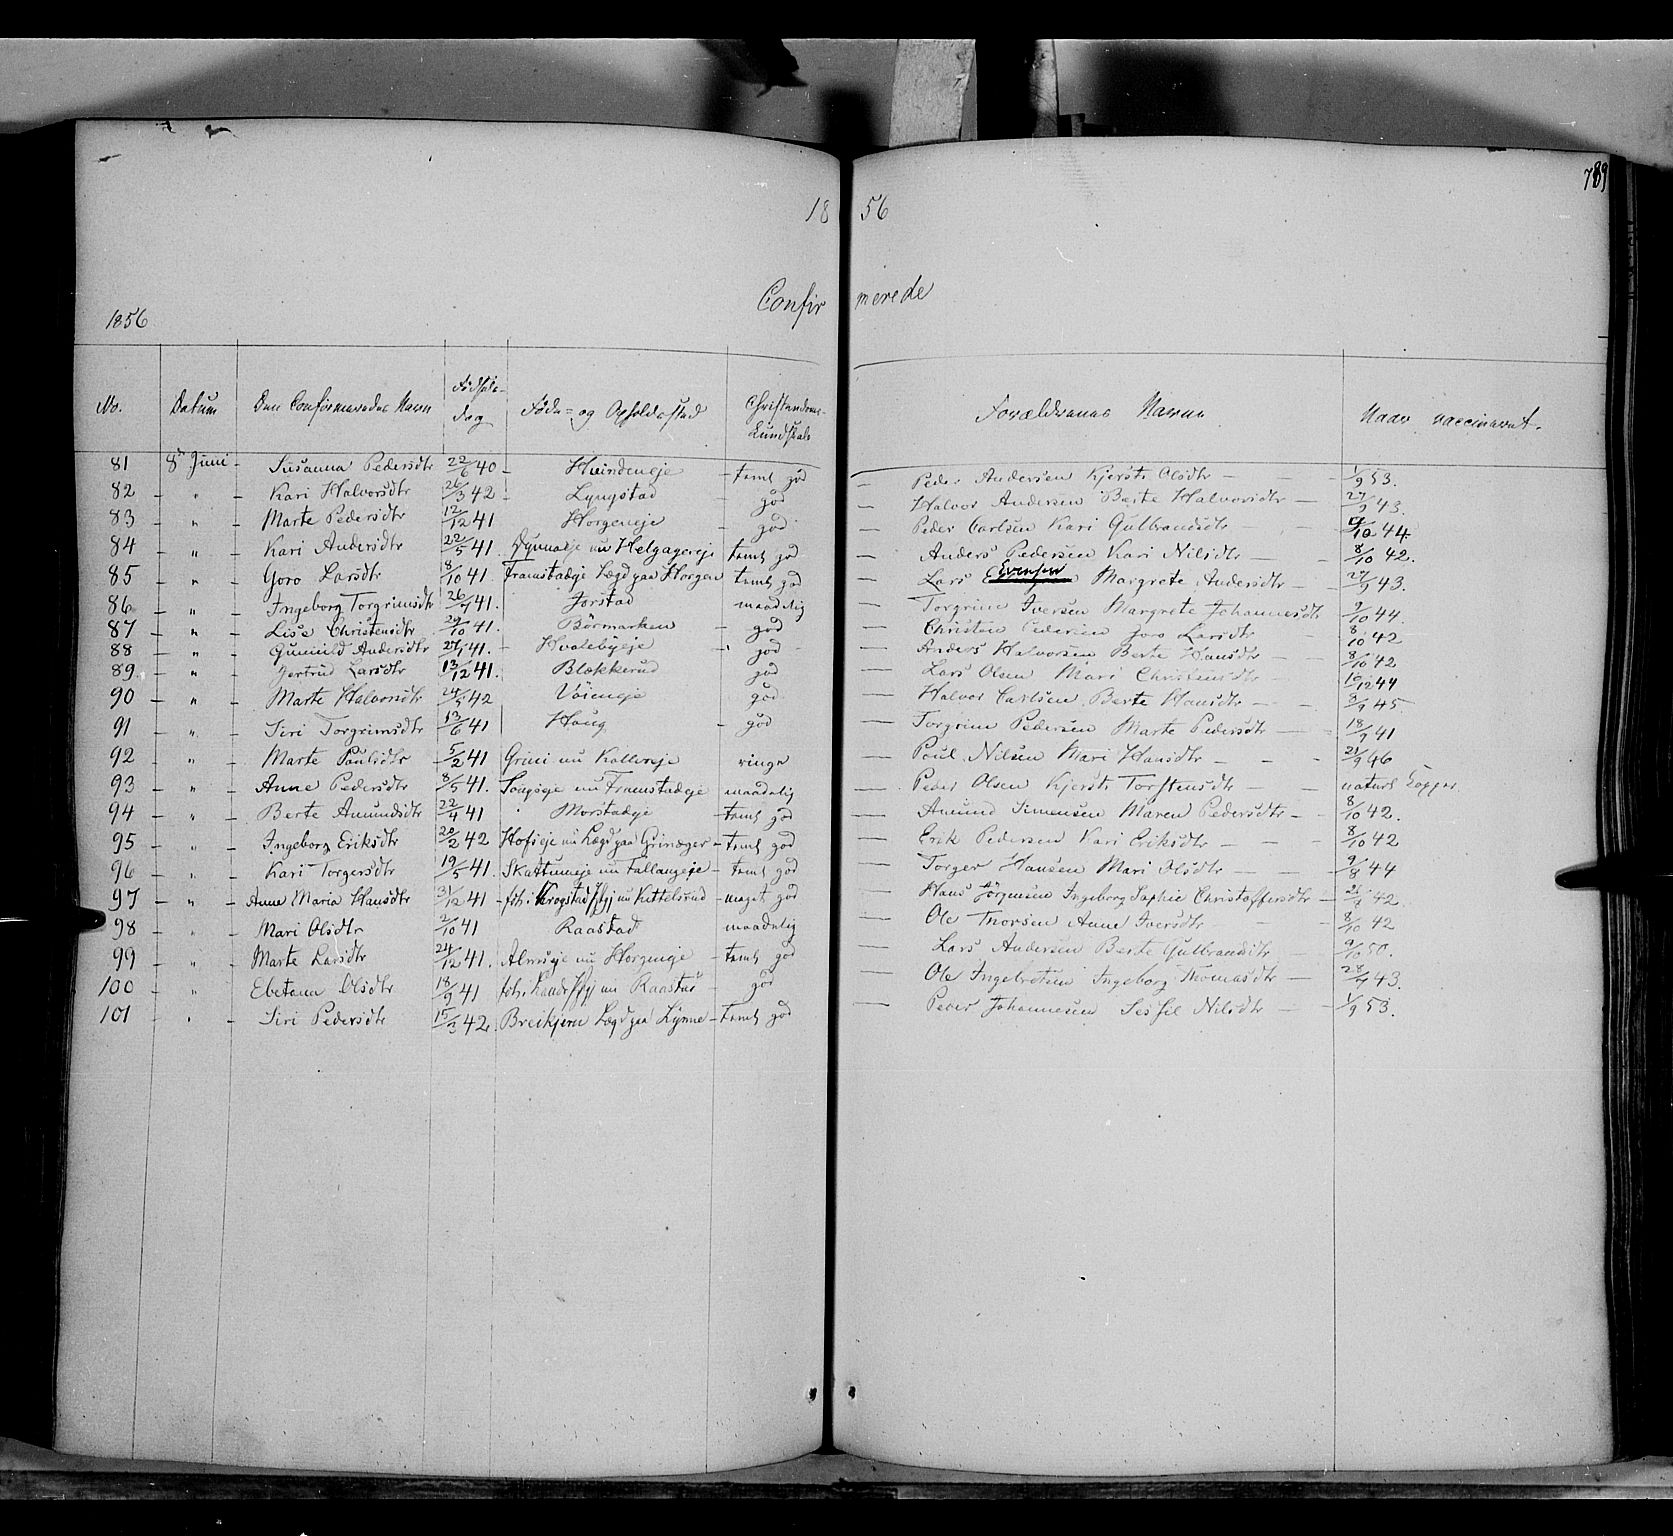 789
18 56
Confir merede
1856
No. Datum Den Confirmeredes Navn Fødsels- dag Føde- og Opholdssted Christendoms- Kundskab Forældrenes Navne Naar vaccineret.
81 8de Juni - Susanna Pedersdtr 22/6 40 - Hvindeneje - temel god - Peder Andersen Kjersti Olsdtr - 1/9 53.
82 - " - Kari Halvorsdtr 26/3 42 - Lyngstad - god - Halvor Andersen Berte Halvorsdtr - 27/9 43.
83 - " - Marte Pedersdtr 12/12 41 Horgeneje - god - Peder Carlsen Kari Gulbrandsdtr - /10 44
84 - " - Kari Andersdtr 22/5 41. nu Helgagereje temel god - Anders Pedersen Kari Nilsdtr - 8/10 42.
85 - " - Goro Larsdtr 8/10 41. Framstadeje Lægd paa Horgen temel god - Lars Evensen Margrete Andersdtr - 27/9 43.
86 - " - Ingeborg Torgrimsdtr 26/ 41. Jorstad maadelig - Torgrim Iversen Margrete Johannesdtr 9/10 44.
87 - " - Lise Christensdtr 29/10 41. Börmarken - god - Christen Pedersen Goro Larsdtr - 8/10 42
88 - " - Gunnild Andersdtr 27/ 41. - Hvalebyeje - god - Anders Halvorsen Berte Hansdtr - 8/10 42
89. - " - Gjertrud Larsdtr 13/12 41. Blekkerud god - Lars Olsen Mari Christensdtr 10/12 44
90 - " - Marte Halvorsdtr 24/5 42 Vöieneje god - Halvor Carlsen Berte Hansdtr - - 9/9 45.
91 - " - Siri Torgrimsdtr 13/6 41 Haug - god - Torgrim Pedersen Marte Pedersdtr - 18/9 41
92 - " - Marte Paulsdtr - 5/2 41 Grini nu ringe - Poul Nilsen Mari Hansdtr - - - 21/9 46
93 - " - Anne Pedersdtr 8/5 41. nu Framstadeje maadelig - Peder Olsen Kjersti Torstensdtr - - naturl Kopper
94 - " - Berte Amundsdtr 22/4 41 Morstadeje - temel god - Amund Simensen Maren Pedersdtr - - 8/10 42.
95 - " - Ingeborg Eriksdtr 20/2 42 Hofseje nu Lægd paa Grinager - temel god - Erik Pedersen Kari Eriksdtr - - 8/10 42
96 - " - Kari Torgersdtr 19/5 41. nu Fallangeje - temel god - Torger Hansen Mari Olsdtr - - 9/8 44
97 - " - Anne Maria Hansdtr 31/12 41 - nu Kittelsrud - meget god - Hans Jörgensen Ingeborg Sophie Christoffersdtr - 42.
98 - " - Mari Olsdtr 2/10 41 Raastad maadelig - Ole Thorsen Anne Iversdtr - 8/10 42
99 - " - Marte Larsdtr 24/12 41. nu Horgeneje - temel god - Lars Andersen Berte Gulbrandsdtr - 9/10 50.
100 - " - Olsdtr 18/9 41 nu Raastad - god - Ole Ingebretsen Ingeborg Thomasdtr - 28/9 43.
101 - " - Siri Pedersdtr 15/3 42. Breikjern Lægd paa - temel god - Peder Johannesen Sessil Nilsdtr - 1/9 53.